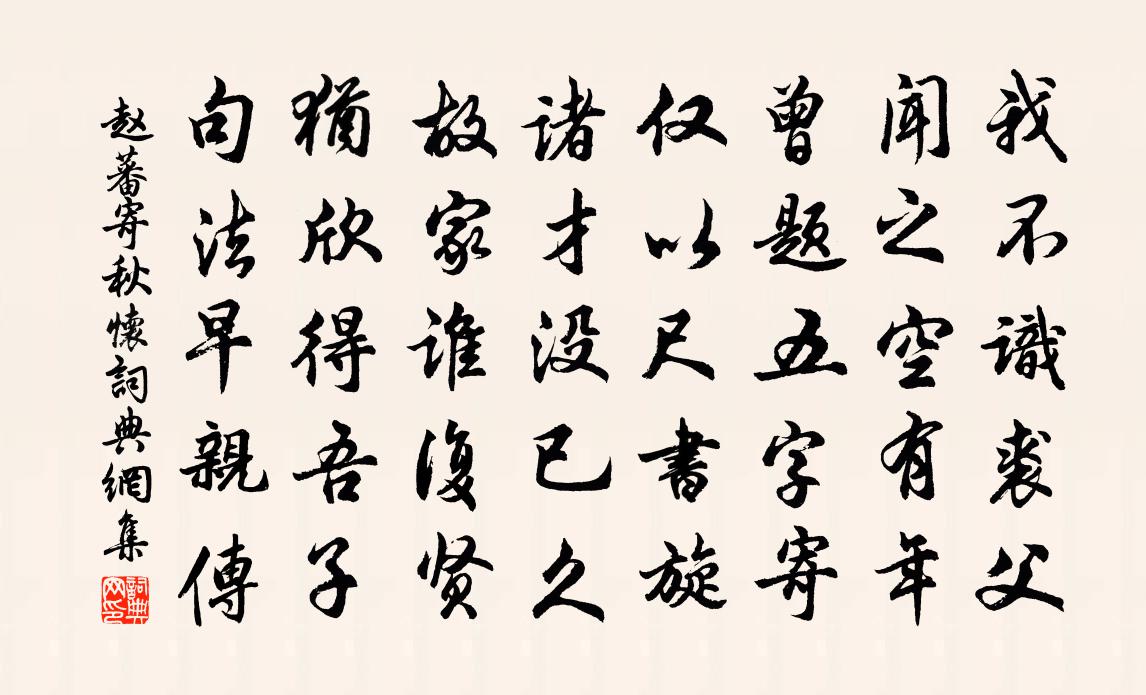 我不識裘父
聞之空有年
曾题五字寄
仅以尺書旋
诸才没已久
故家谁復贤
猶欣得吾子
句法早親傳
赵蕃寄秋懷詞典網集
詞典
网印